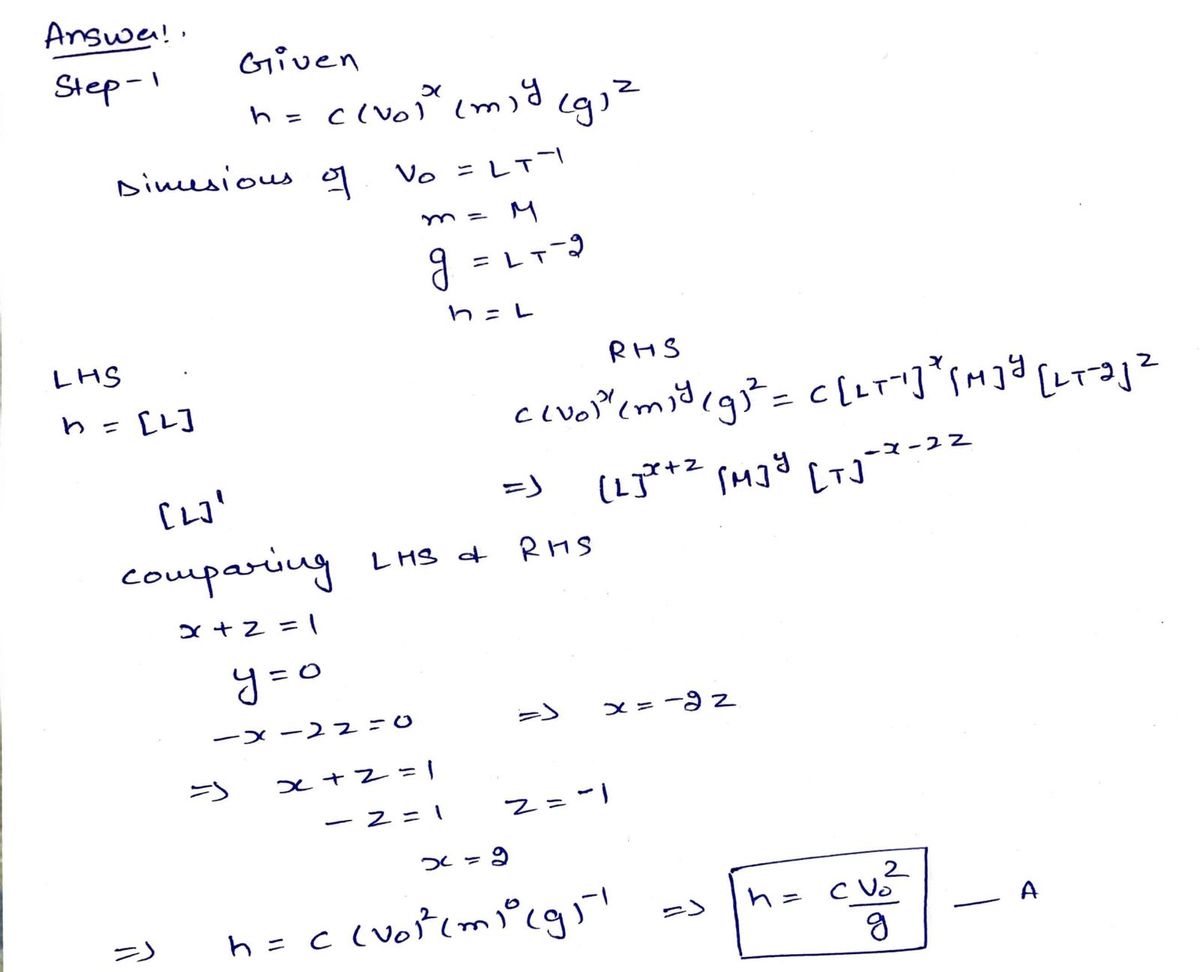 Answer!.
Step-1 Given
h = c(v₀)ˣ (m)ʸ (g)ᶻ
Dimesious of v₀ = LT⁻¹
m = M
g = LT⁻²
h = L
LHS RHS
h = [L] c(v₀)ˣ(m)ʸ(g)ᶻ = c[LT⁻¹]ˣ[M]ʸ[LT⁻²]ᶻ
[L]¹ => [L]ˣ⁺ᶻ [M]ʸ [T]⁻ˣ⁻²ᶻ
comparing LHS & RHS
x + z = 1
y = 0
-x - 2z = 0 => x = -2z
=> x + z = 1
- z = 1 z = -1
x = 2
=> h = c (v₀)²(m)⁰(g)⁻¹ => h = cv₀²/g — A